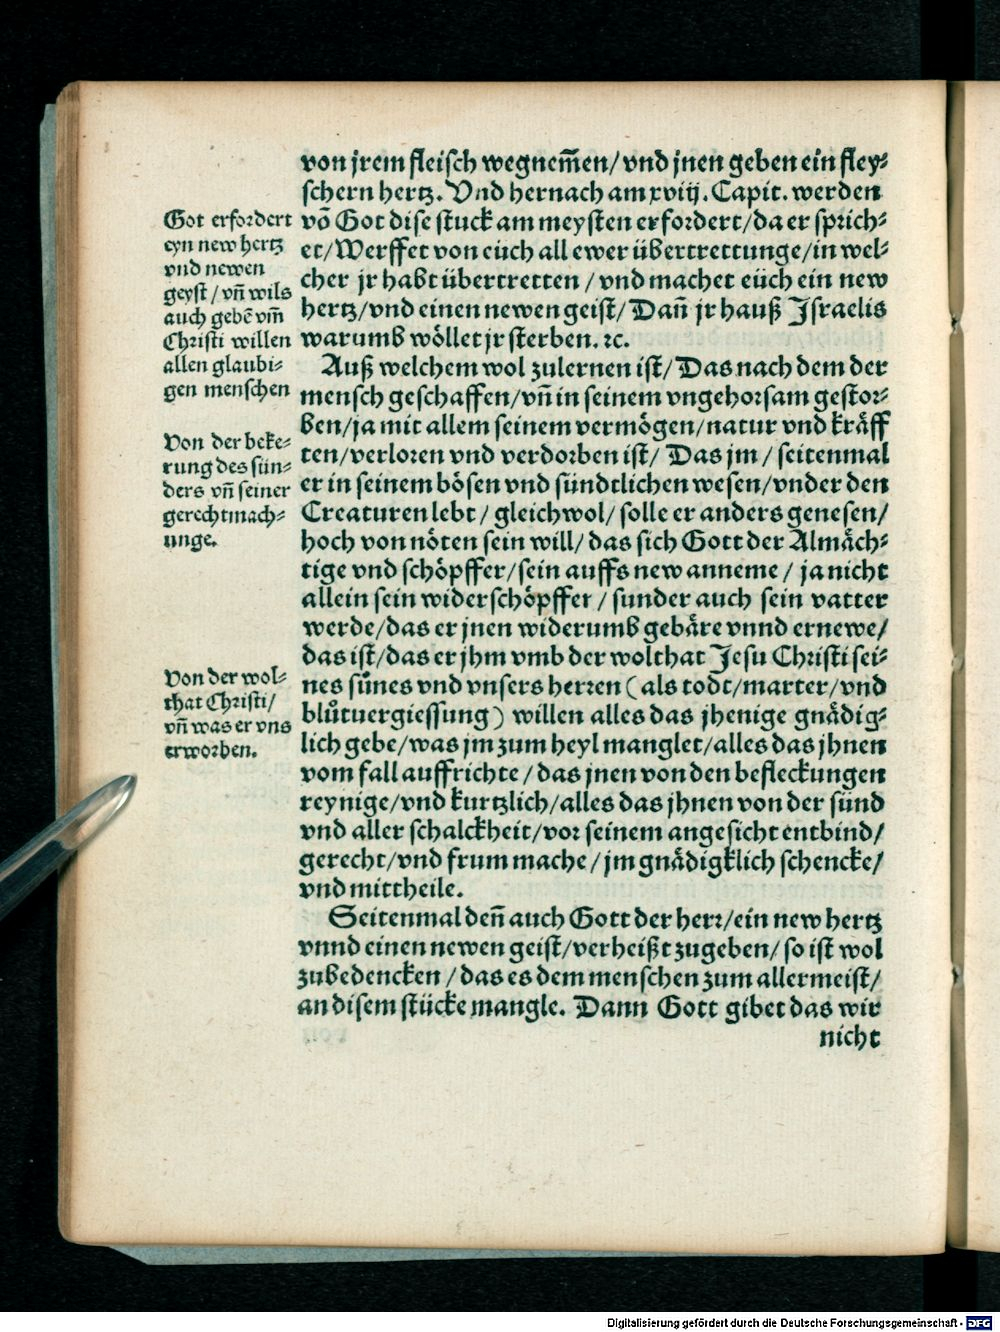 von jrem fleisch wegnem̃en/ vnd jnen geben ein fley⸗
schern hertz. Vnd hernach am xviij. Capit. werden
võ Got dise stuck am meysten erfordert/ da er sprich⸗
et/ Werffet von euch all ewer übertrettunge/ in wel⸗
cher jr habt übertretten / vnd machet eüch ein new
hertz/ vnd einen newen geist/ Dañ jr hauß Jsraelis
warumb wöllet jr sterben. ꝛc.
Auß welchem wol zulernen ist/ Das nach dem der
mensch geschaffen/ vñ in seinem vngehorsam gestor⸗
ben/ ja mit allem seinem vermögen/ natur vnd kräff
ten/ verloren vnd verdorben ist/ Das jm / seitenmal
er in seinem bösen vnd sündtlichen wesen/ vnder den
Creaturen lebt / gleichwol/ solle er anders genesen/
hoch von nöten sein will/ das sich Gott der Almäch⸗
tige vnd schöpffer/ sein auffs new anneme / ja nicht
allein sein widerschöpffer / sunder auch sein vatter
werde/ das er jnen widerumb gebäre vnnd ernewe/
das ist/ das er jhm vmb der wolthat Jesu Christi sei⸗
nes sůnes vnd vnsers herren ( als todt/ marter/ vnd
blůtuergiessung ) willen alles das jhenige gnädig⸗
lich gebe/ was jm zum heyl manglet/ alles das jhnen
vom fall auffrichte / das jnen von den befleckungen
reynige/ vnd kurtzlich/ alles das jhnen von der sünd
vnd aller schalckheit/ vor seinem angesicht entbind/
gerecht/ vnd frum mache / jm gnädigklich schencke/
vnd mittheile.
Seitenmal deñ auch Gott der herr/ ein new hertz
vnnd einen newen geist/ verheißt zugeben/ so ist wol
zubedencken / das es dem menschen zum allermeist/
an disem stücke mangle. Dann Gott gibet das wir
nicht
Got erfordert
eyn new hertz
vnd newen
geyst / vñ wils
auch gebẽ vm̃
Christi willen
allen glaubi⸗
gen menschen
Von der beke⸗
rung des sün⸗
ders vñ seiner
gerechtmach⸗
unge.
Von der wol⸗
that Christi/
vñ was er vns
erworben.
Digitalisierung gefördert durch die Deutsche Forschungsgemeinschaft - DFG